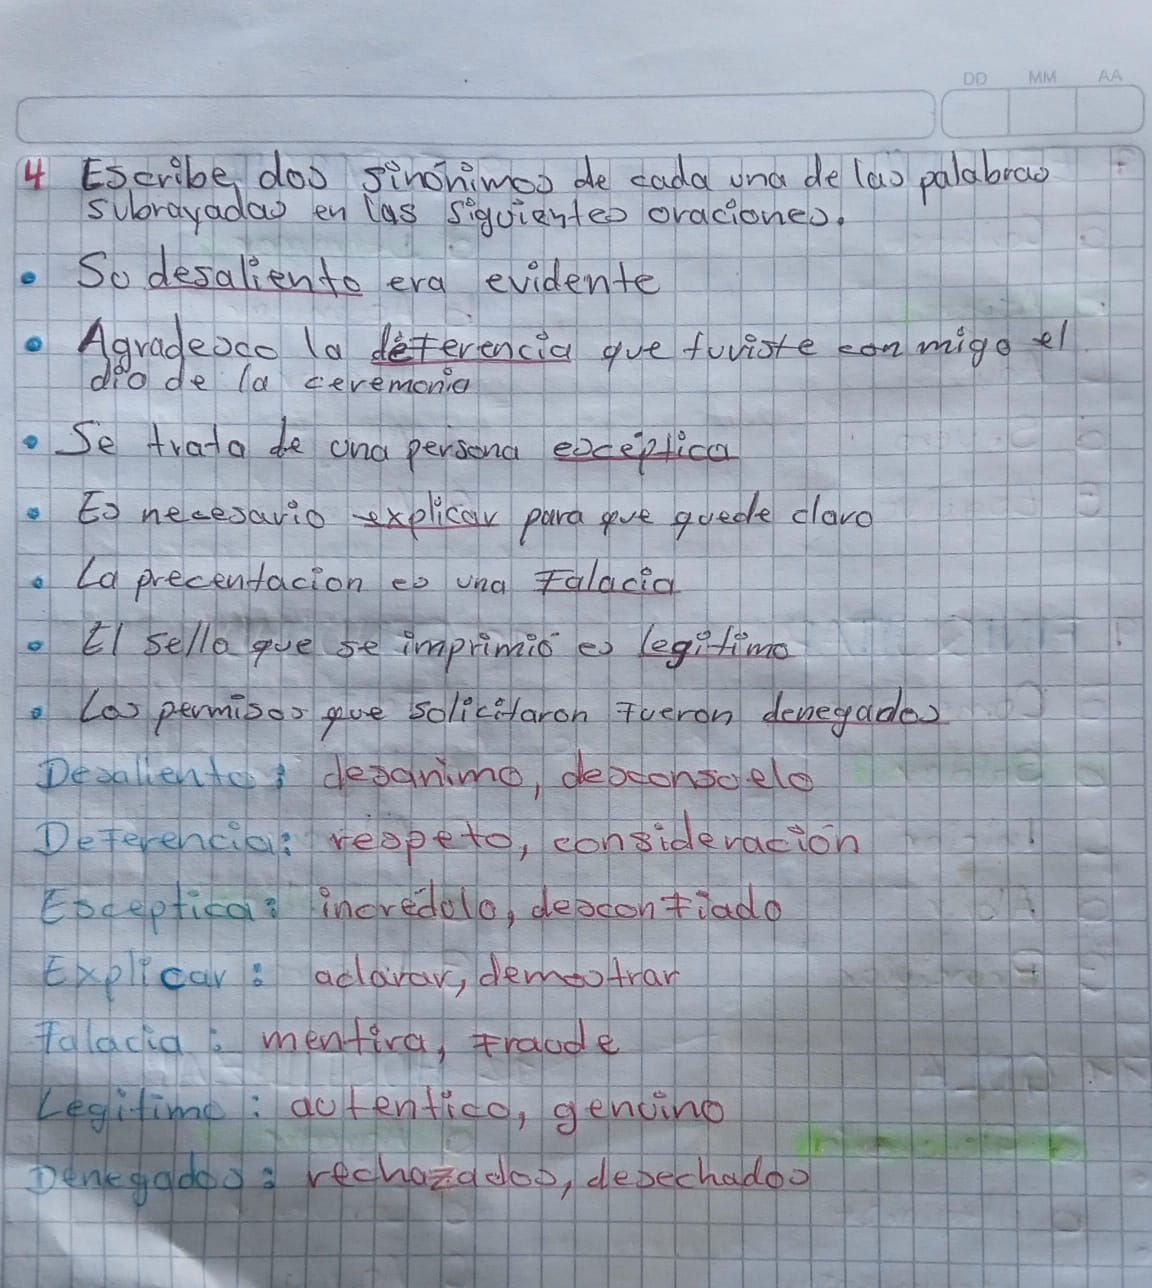 DD MM AA
4 Escribe dos sinónimos de cada una de las palabras
subrayadas en las siguientes oraciones.
• Su desaliento era evidente
• Agradesco la deferencia que tuviste conmigo el
dia de la ceremonia
• Se trata de una persona esceptica
• Es necesario explicar para que quede claro
• La precentacion es una falacia
• El sello que se imprimió es legitimo
• Los permisos que solicitaron fueron denegados
Desaliento: desanimo, desconsuelo
Deferencia: respeto, consideración
Esceptica: incrédulo, desconfiado
Explicar: aclarar, demostrar
Falacia: mentira, fraude
Legitimo: autentico, genuino
Denegados: rechazados, desechados